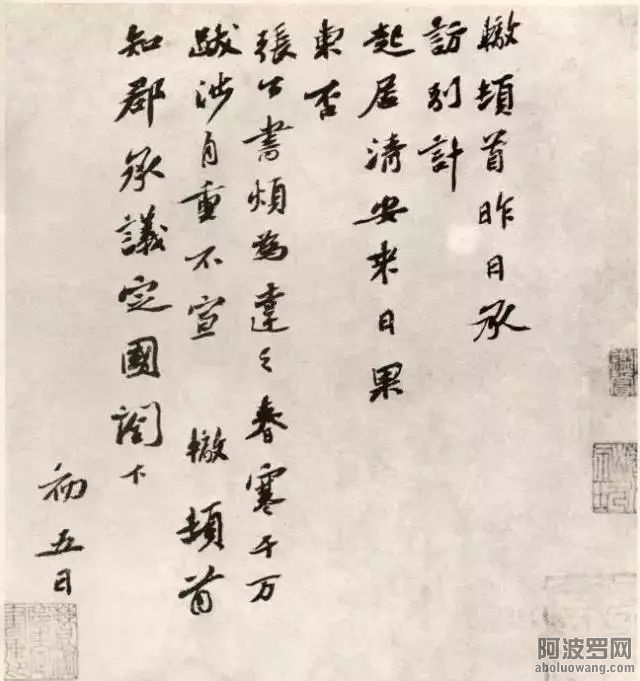 轍頓首昨日承
訪別計
起居清安來日果
東否
張公書煩為達之春寒千万
跋涉自重不宣 轍頓首
知郡承議定國閤下
初五日
阿波罗网
aboluowang.com